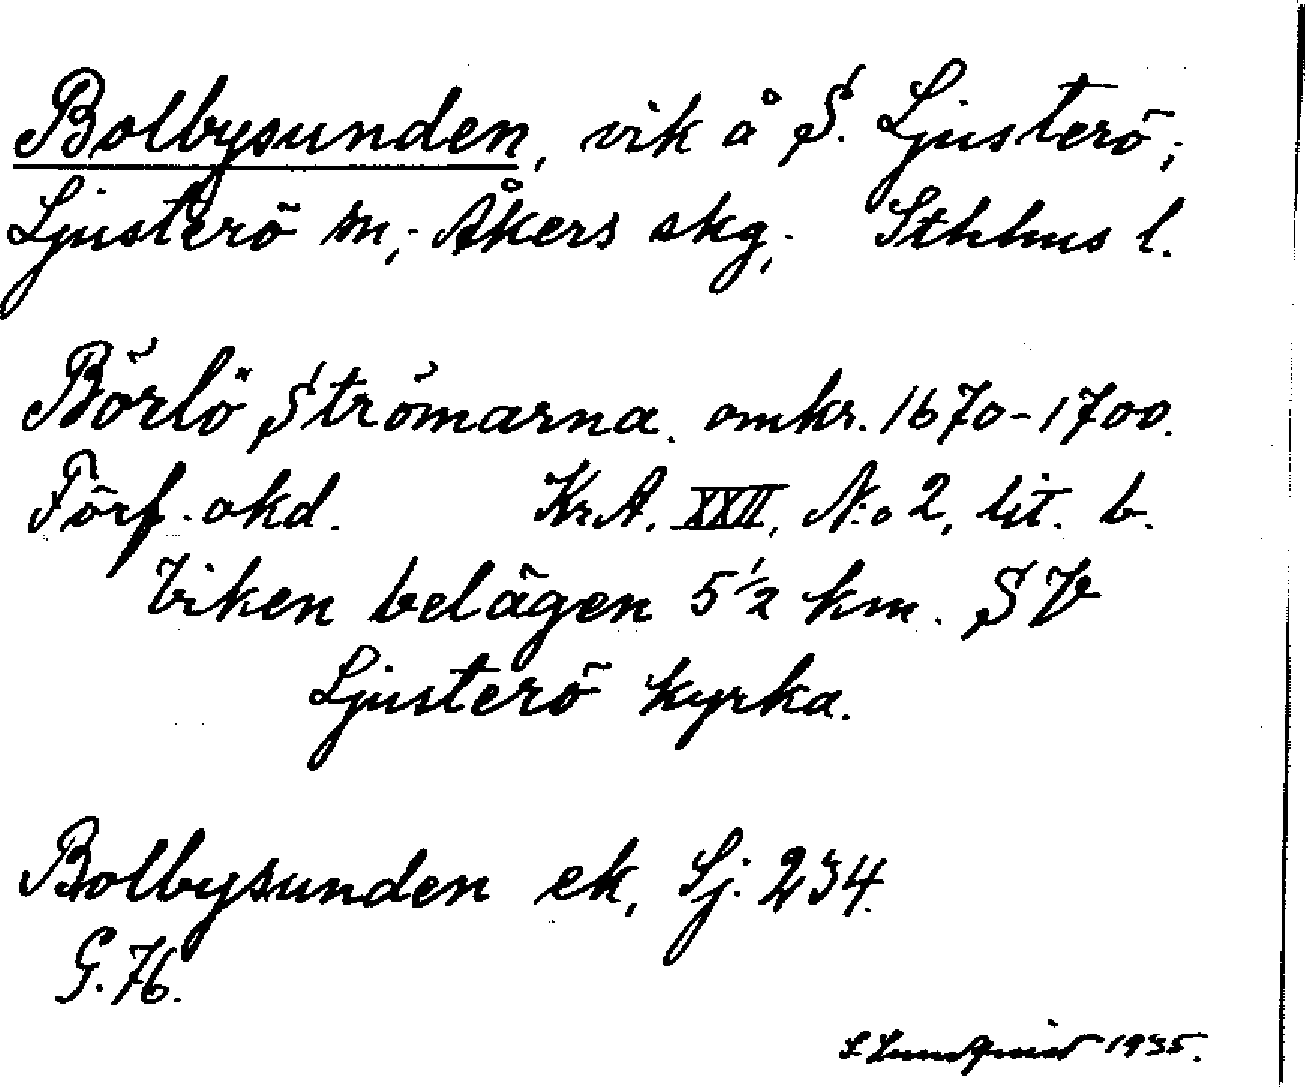 Bolbysunden, vik å S. Ljusterö,
Ljusterö sn, Åkers skg, Sthlms l.
Börlö Strömarna. omkr. 1670-1700.
Förf. okd. Kr.A. XXII, N:o 2, lit. b.
Viken belägen 5 1/2 km. SV
Ljusterö kyrka.
Bolbysunden ek, Sj. 234.
G. 76.
S. Lundqvist 1935.